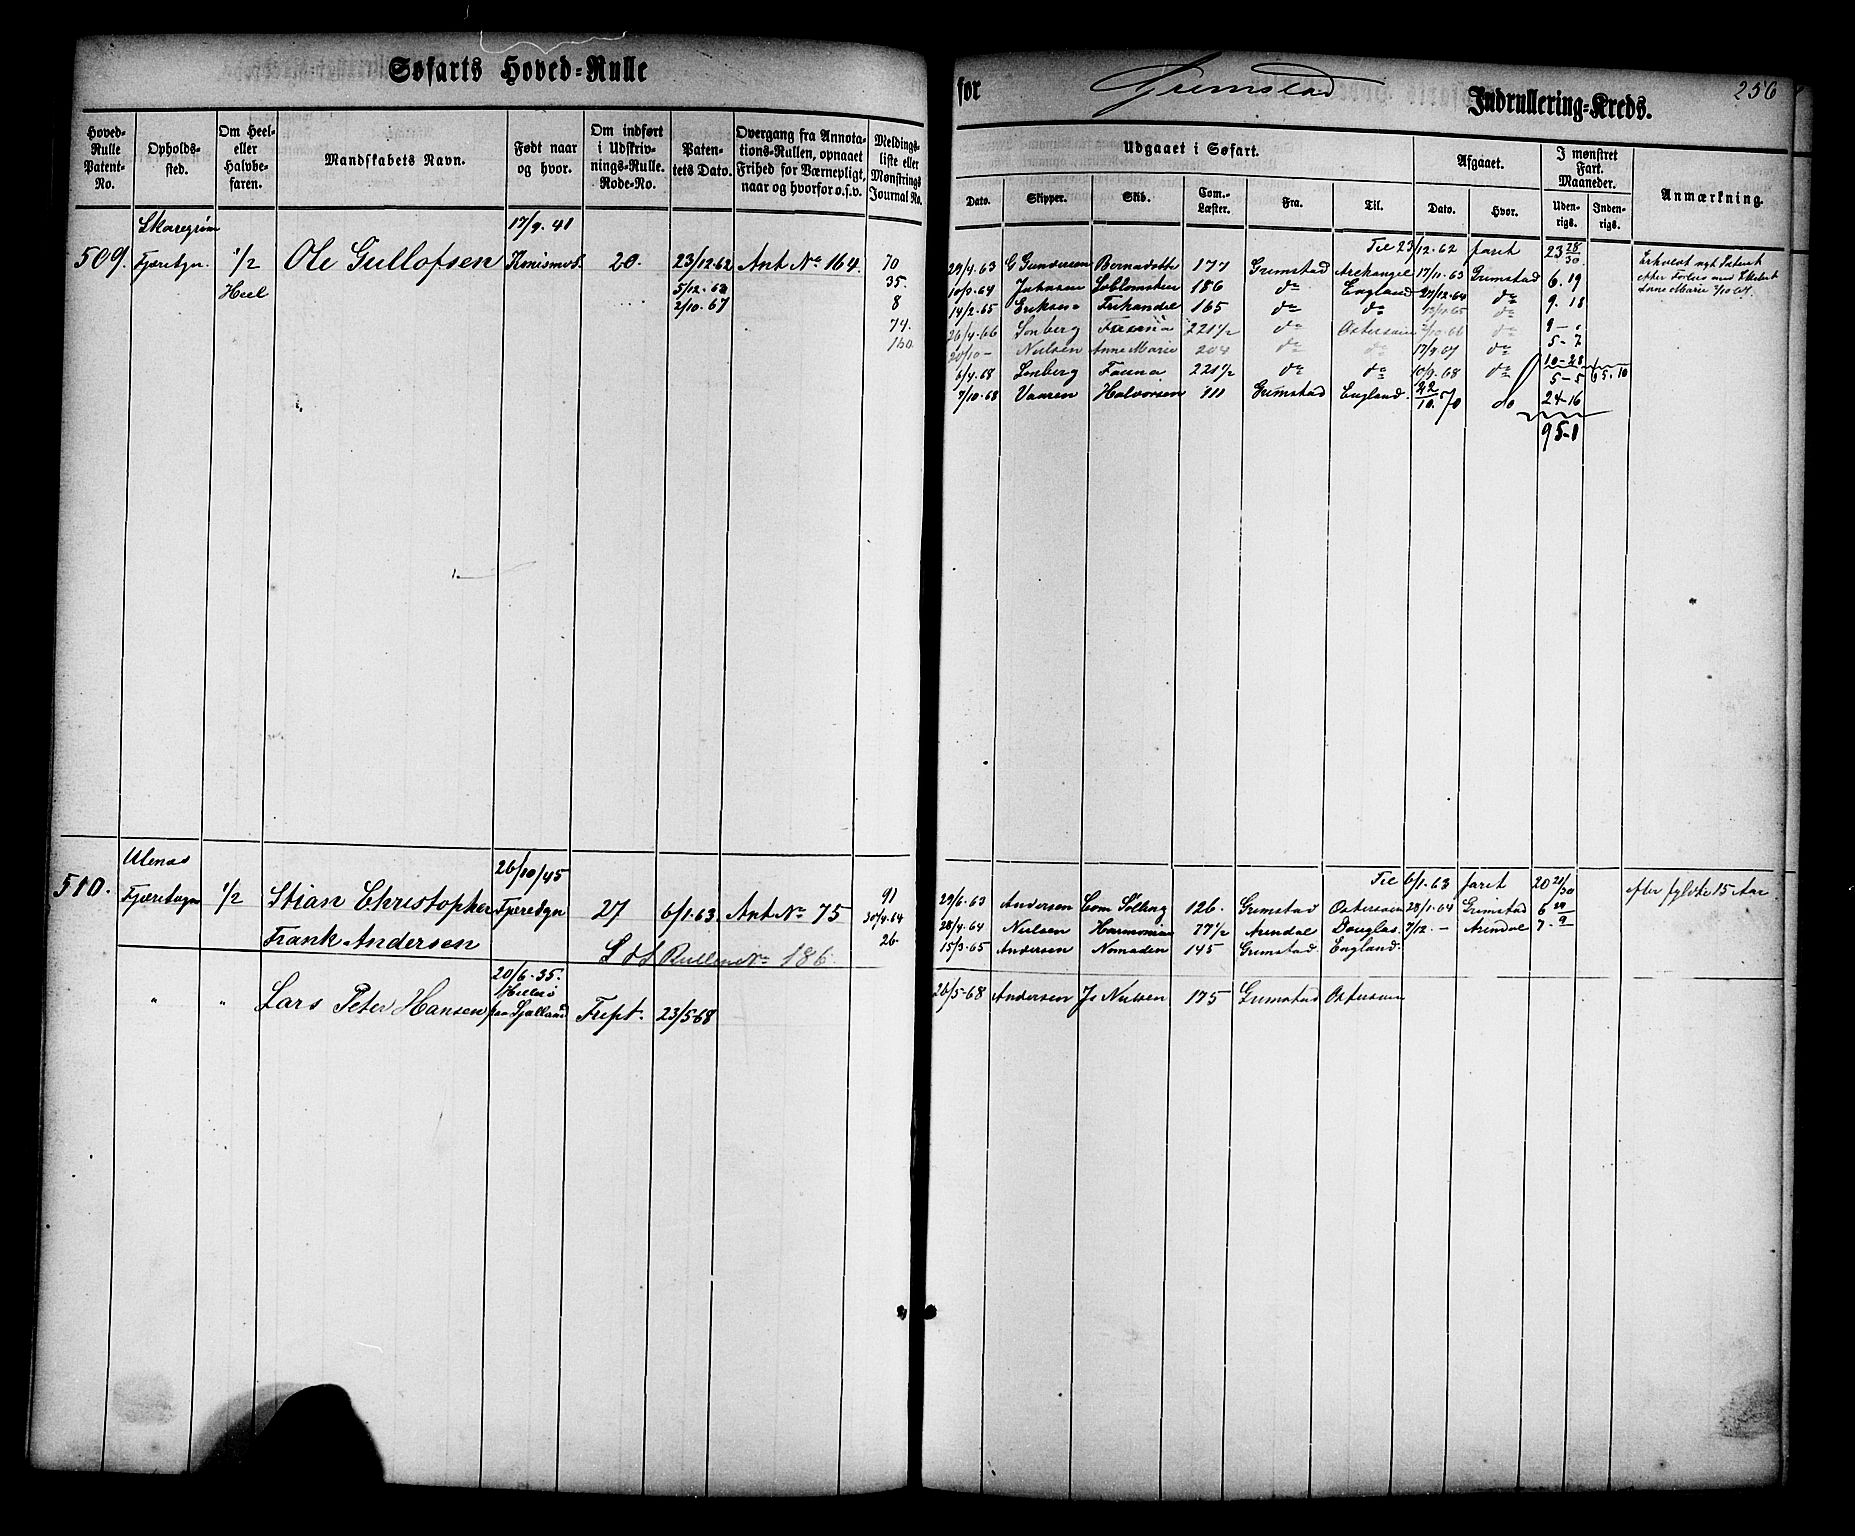 Søfarts Hoved-Rulle
for Grimstad Indrullering-Kreds. 256
Hoved-Rulle Patent-No.
Opholds-sted.
Om Heel- eller Halvbe-faren.
Mandskabets Navn.
Født naar og hvor.
Om indført i Udskriv-nings-Rulle. Rode-No.
Paten-tets Dato.
Overgang fra Annota-tions-Rullen, opnaaet Frihed for Værnepligt, naar og hvorfor o.s.v.
Meldings-liste eller Mønstrings Journal No.
Udgaaet i Søfart.
Dato. Skipper. Skib. Com.-Læster. Fra. Til.
Afgaaet.
Dato. Hvor.
I mønstret Fart. Maaneder.
Uden-rigs. Inden-rigs.
Anmærkning.
509. Fjæresogn 1/2 Ole Gullofsen 17/9.41 20. 23/12.62 Ant No 164. 70
Heel 5/12.63 35.
2/10.67 8
74.
160.
Til 23/12.62 faret 23 28/30
29/4.63 G Gundersen Bernadotte 177 Grimstad Archangel 17/11.63 Grimstad 6.19
10/3.64 186 do England 27/12.64 do 9.18
14/2.65 165 do do do 9-
26/4.66 Fauna 221 1/2 do Østersøen do 5-7
20/10- Nielsen Anne Marie 204 do do 17/9.67 do 10-28
6/4.68 Fauna 221 1/2 do do 10/9.68 do 5-5 65.10
7/10.68 Vaaren Halvorsen 111 Grimstad England. 22/10.70 do 24-16
95-1
510. Fjæresogn 1/2 Stian Christopher 26/10/45 Fjæresogn 27 6/1.63. Ant No 75 91
Frank Andersen 30/4.64
26
Rullen No 186
Til 6/1.63 faret 20 21/30 efter fyldte 15 Aar
29/6.63 Andersen 126. Grimstad Østersøen 28/1.64 Grimstad 6
28/4.64 Nielsen Harmonien 77 1/2 Arendal Douglas. 7/12.- Arendal 7. 9
15/3.65 Andersen Nomaden 145 Grimstad England.
" " Lars Peter Hansen 20/6.35. paa Sjælland 23/5.68
26/5-68 Andersen Js Nielsen 175 Grimstad Østersøen